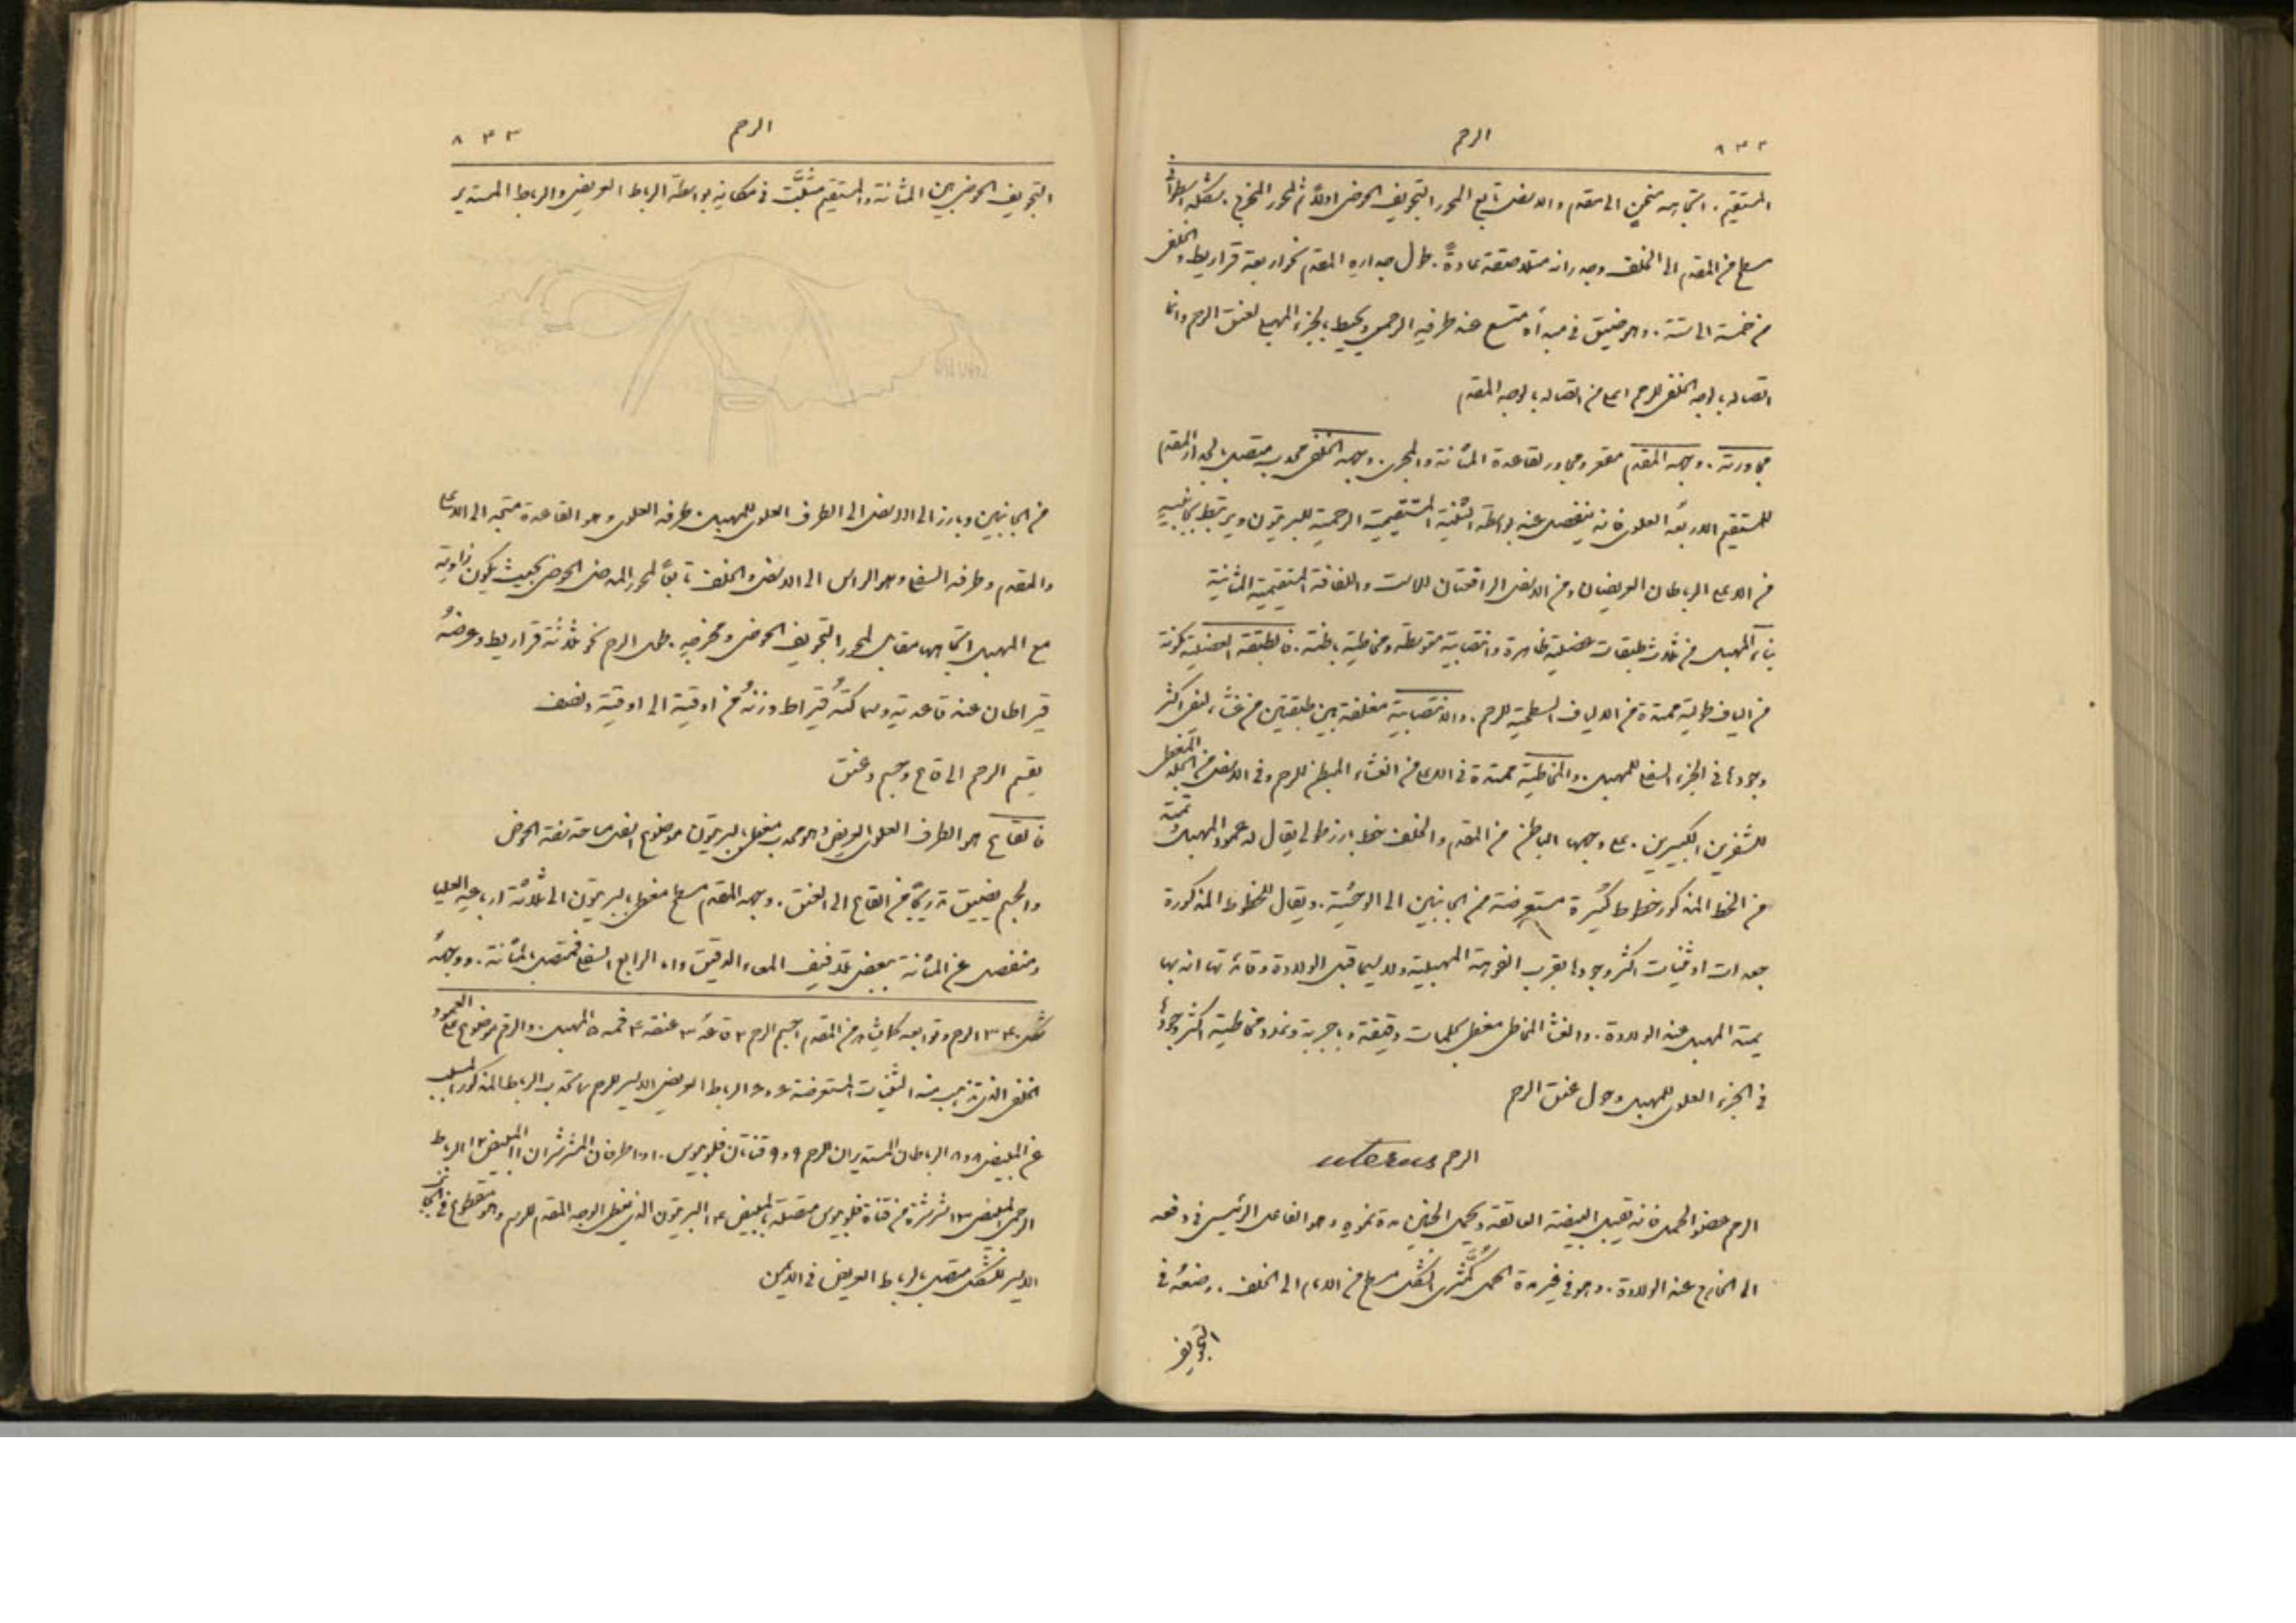 ٨٣٢ الرحم
المستقيم. اتجاهه منحنٍ الى مقدم والاسفل تابع المحور التجويف الحوض اولاً ثم لمحور المخرج. شكله اسطواني
مسطح من المقدم الى الخلف وجدرانه متلاصقة عادةً. طول جداره المقدم نحو اربعة قراريط والخلفي
من خمسة الى ستة. وهو ضيق في مبدأه متسع عند طرفه الرحمي ويحيط بالجزء المهبلي لعنق الرحم وانما
اتصاله بالوجه الخلفي للرحم اعلى من اتصاله بالوجه المقدم
مجاورته. وجهه المقدم مقعر ومجاور لقاعدة المثانة والمجرى. وجهه الخلفي محدب متصل بالجدار المقدم
للمستقيم الا ربعه العلوي فانه ينفصل عنه بواسطة الثنية المستقيمية الرحمية للبريتون ويرتبط بجانبيه
من الاعلى الرباطان العريضان ومن الاسفل الرافعتان للاست واللفافة المستقيمية المثانية
بناء المهبل من ثلاث طبقات عضلية ظاهرة وانتصابية متوسطة ومخاطية باطنة. فالطبقة العضلية مكونة
من الياف طولية ممتدة من الالياف السطحية للرحم. والانتصابية مغلفة بين طبقتين من غشاء ليفي اكثر
وجودها في الجزء السفلي للمهبل. والمخاطية ممتدة في الاعلى من الغشاء المبطن للرحم وفي الاسفل من الجلد المغطي
للشفرين الكبيرين. على وجهه الباطن من المقدم والخلف خط بارز طولي يقال له عمود المهبل وتمتد
من الخط المذكور خطوط كثيرة مستعرضة من الجانبين الى الوحشية. ويقال للخطوط المذكورة
جعدات او ثنيات اكثر وجودها بقرب الفوهة المهبلية ولا سيما قبل الولادة وفائدتها انه بها
يمتد المهبل عند الولادة. والغشاء المخاطي مغطى بحلمات دقيقة وباجربة وغدد مخاطية اكثر وجودها
في الجزء العلوي للمهبل وحول عنق الرحم
الرحم uterus
الرحم عضو الحمل فانه يقبل البيضة العالقة ويحمل الجنين مدة نموه وهو الفاعل الرئيسي في دفعه
الى الخارج عند الولادة. وهو في غير مدة الحمل كمثري الشكل مسطح من الامام الى الخلف. وضعه في
التجويف
الرحم ٨٣٣
التجويف الحوضي بين المثانة والمستقيم مثبت في مكانه بواسطة الرباط العريض والرباط المستدير
من الجانبين وبارز الى الاسفل الى الطرف العلوي للمهبل. طرفه العلوي وهو القاعدة متجه الى الاعلى
والمقدم وطرفه السفلي وهو الراس الى الاسفل والخلف تابعاً لمحور المدخل الحوض بحيث يكون زاوية
مع المهبل اتجاهها مقابل لمحور التجويف الحوض ومخرجه. طول الرحم نحو ثلاثة قراريط وعرضه
قيراطان عند قاعدته وسماكته قيراط وزنه من اوقية الى اوقية ونصف
يقسم الرحم الى قاع وجسم وعنق
فالقاع هو الطرف العلوي العريض وهو محدب مغطى بالبريتون موضوع اسفل حافة الحوض
والجسم يضيق تدريجاً من القاع الى العنق. وجهه المقدم مسطح مغطى بالبريتون الى ثلاثة ارباعه العليا
ومنفصل عن المثانة ببعض تلافيف المعاء الدقيق واما الرابع السفلي فمتصل بالمثانة. ووجهه
شكل ٣٤٠ الرحم وتوابعه كما يشاهد من المقدم ١ جسم الرحم ٢ قاعه ٣ عنقه ٤ فمه ٥ المهبل. والرقم موضوع على العمود
الخلفي الذي تذهب منه الثنيات المستعرضة ٦ و٦ الرباط العريض الايسر للرحم ٧ تحدب الرباط المذكور المسبب
عن المبيض ٨ و٨ الرباطان المستديران للرحم ٩ و٩ قناتان فلوبيوس. ١٠ و١٠ طرفان المشرشران ١١ المبيض ١٢ الرباط
الرحمي المبيضي ١٣ شرشرة من قناة فلوبيوس متصلة بالمبيض ١٤ البريتون الذي يغطي الوجه المقدم للرحم وهو مقطوع في الجانب
الايسر للشكل متصل بالرباط العريض في الايمن